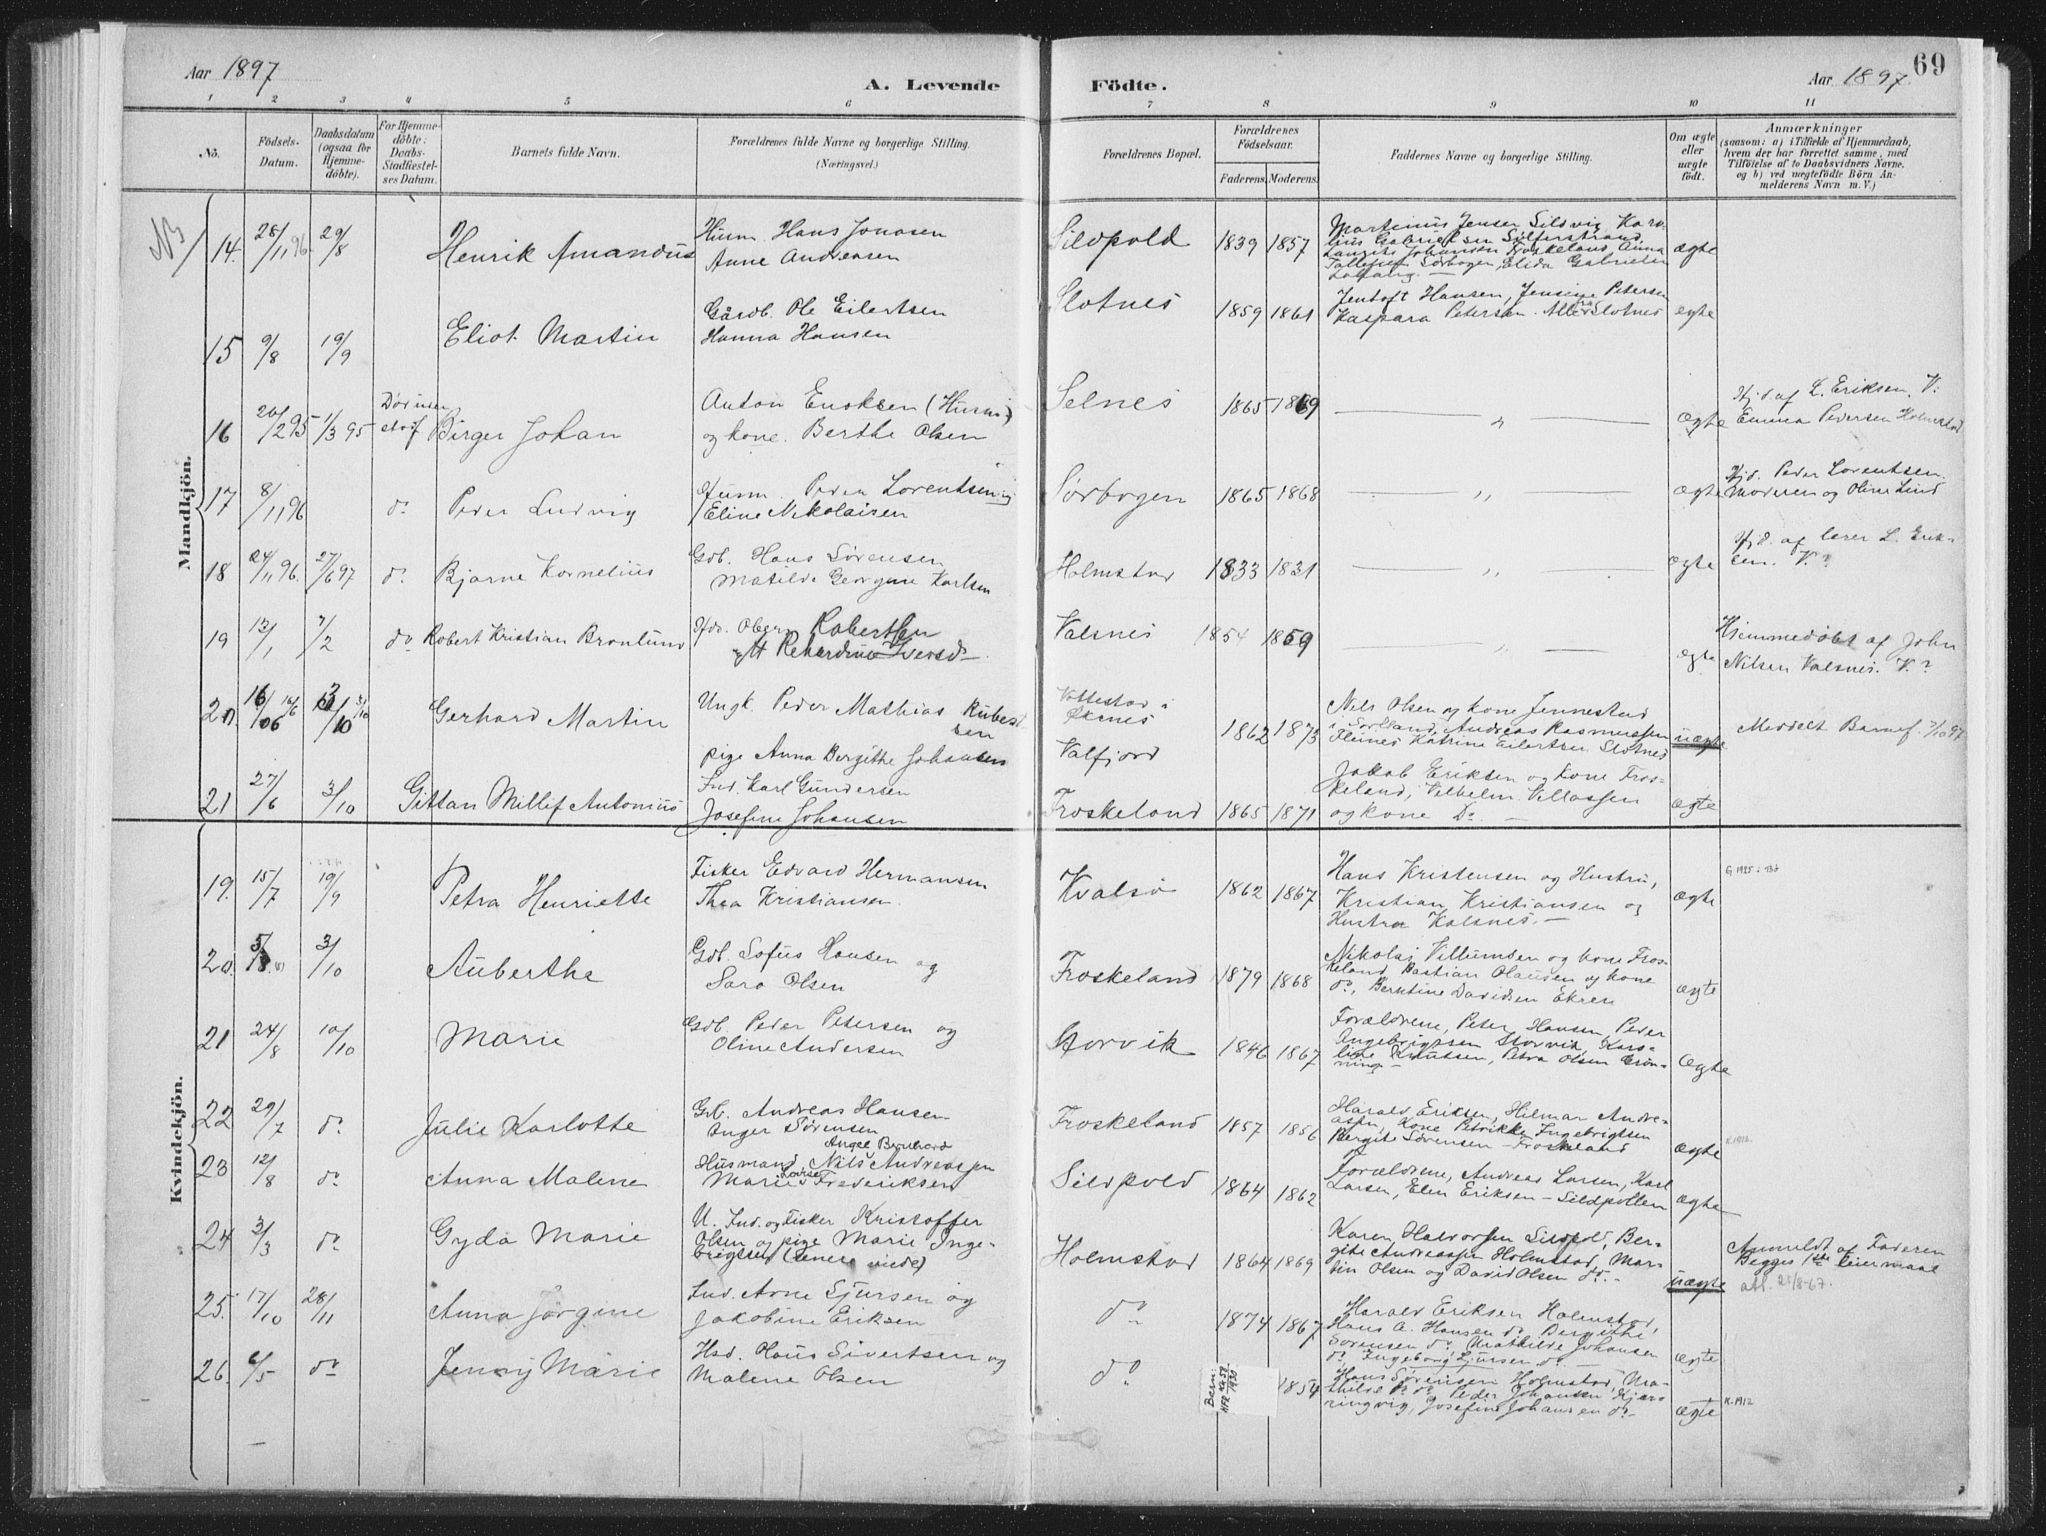 69
Aar 1897
A. Levende Födte.
Aar 1897
1 2 3 4 5 6 7 8 9 10 11
No.
Födsels-
Datum.
Daabsdatum
(ogsaa for
Hjemme-
döbte).
For Hjemme-
döbte:
Daabs-
Stadfæstel-
ses Datum.
Barnets fulde Navn.
Forældrenes fulde Navne og borgerlige Stilling.
(Næringsvei.)
Forældrenes Bopæl.
Forældrenes
Födselsaar.
Faderens. Moderens.
Faddernes Navne og borgerlige Stilling.
Om ægte
eller
uægte
födt.
Anmærkninger
(saasom: a) i Tilfælde af Hjemmedaab,
hvem der har forrettet samme, med
Tilföielse af to Daabsvidners Navne.
og b) ved uægtefödte Börn An-
melderens Navn m. V.)
Mandkjön.
14. 28/11 96 29/8 Henrik Amandus
Husm. Hans Jonasen
Anne Andreasen
Sildpold 1839 1857
Martinius Jensen Sildvig
ægte
15 9/8 19/9 Eliot Martin
Gårdb. Ole Eilertsen
Hanna Hansen
Slotnes 1859 1861
Jentoft Hansen, Jensine Petersen
Kaspara Petersen. Alle fra Slotnes
ægte
16 20/2 95 1/3 95 Birger Johan
Anton Enoksen (Husm)
og kone. Berthe Olsen
Selnes 1865 1869
— „ —
ægte
Hjd. af L. Eriksen. V:
Emma Pedersen Holmstad
17 8/11 96 do Peder Ludvig
Husm. Peder Lorentsen
Eline Nikolaisen
Sørbogen 1865 1868
— „ —
ægte
Hjd. Peder Lorentsen.
Moderen og Oline Lind
18 24/11 96. 27/6 97 do Bjarne Kornelius
Gdb. Hans Sørensen
Matilde Georgine Karlsen
Holmstad 1833 1831
— „ —
ægte
Hjd. af lærer L. Erik-
sen. V.?
19 13/1 7/2 do Robert Kristian Bronlund
Robertsen
Valsnes 1854 1859
— „ —
ægte
Hjemmedøbt af John
Nilsen Valsnes. V.?
20. Gerhard Martin
Ungk. Peder Mathias
pige Anna Bergithe Johansen
Vottestad i
Øksnes
Valfjord
1862 1873
Nils Olsen og kone Jennestad
i Sortland, Andreas Rasmussen
Fleines Katrine Eilertsen Slotnes
uægte
Meddelt Barnef. 7/10 97
21 27/6 3/10 Gittan Millef Antonius
Ind. Karl Gundersen
Josefine Johansen
Froskeland 1865 1871
Jakob Eriksen og Kone Fros-
keland, Vilhelm Villassen
og kone Do. —
ægte
Kvindekjön.
19. 15/7 19/9 Petra Henriette
Fisker Edvard Hermansen
Thea Kristiansen.
Kvalsø 1862 1867
Hans Kristensen og Hustru,
Kristian Kristiansen og
Hustru Valsnes. —
ægte
20. 5/8 3/10 Auberthe
Gdb. Sofus Hansen og
Sara Olsen
Froskeland 1879 1868
Nikolai Villumsen og kone Fros-
keland, Bastian Olausen og kone
do, Berntine Davidsen Ekren
ægte
21 24/8 10/10 Marie
Gdb. Peder Petersen og
Oline Andersen
Storvik 1846 1867
Forældrene, Peter Hansen, Peder
Angebrigtsen Storvik, Karo-
line Knutsen, Petra Olsen Grøn-
ning —
Ægte
22 29/7 do Julie Karlotte
Grb. Andreas Hansen
Inger Sørensen
Froskeland 1857 1856
Harald Eriksen, Hilmar Andre-
assen, Kone Petrikke Ingebrigtsen
Bergite Sørensen — Froskeland
ægte
K.1912
23 12/8 do Anna Malene
Angel Bernhard
Husmand Nils Andreassen
Marie Lovise Frederiksen
Sildpold 1864 1862
Forældrene, Andreas Larsen, Karl
Larsen, Elen Eriksen — Sildpollen
ægte
24 3/3 do Gyda Marie
U. Ind. og Fisker Kristoffer
Olsen og pige Marie Inge-
brigtsen (senere viede)
Holmstad 1864 1869
Karen Halvorsen Sildpold, Ber-
gite Andreassen Holmstad, Mar-
tin Olsen og David Olsen do. —
uægte
Anmeldt af Faderen
Begges 1ste leiermaal
att. 21/8-67.
25. 17/10 28/11 Anna Jørgine
Ind. Arne Sjursen og
Jakobine Eriksen
do 1874 1867
Harald Eriksen Holmstad,
Hans A. Hansen do Bergithe
Sørensen do. Mathilde Johansen
do, Ingeborg Sjursen do. —
ægte
26. 6/5 do Jenny Marie
Hsd. Hans Sivertsen og
Malene Olsen
do 1854
Hans Sørensen Holmstad, Ma-
thilde do do, Peder Johansen Kjær-
ringvig, Josefine Johansen do —
ægte
K.1912